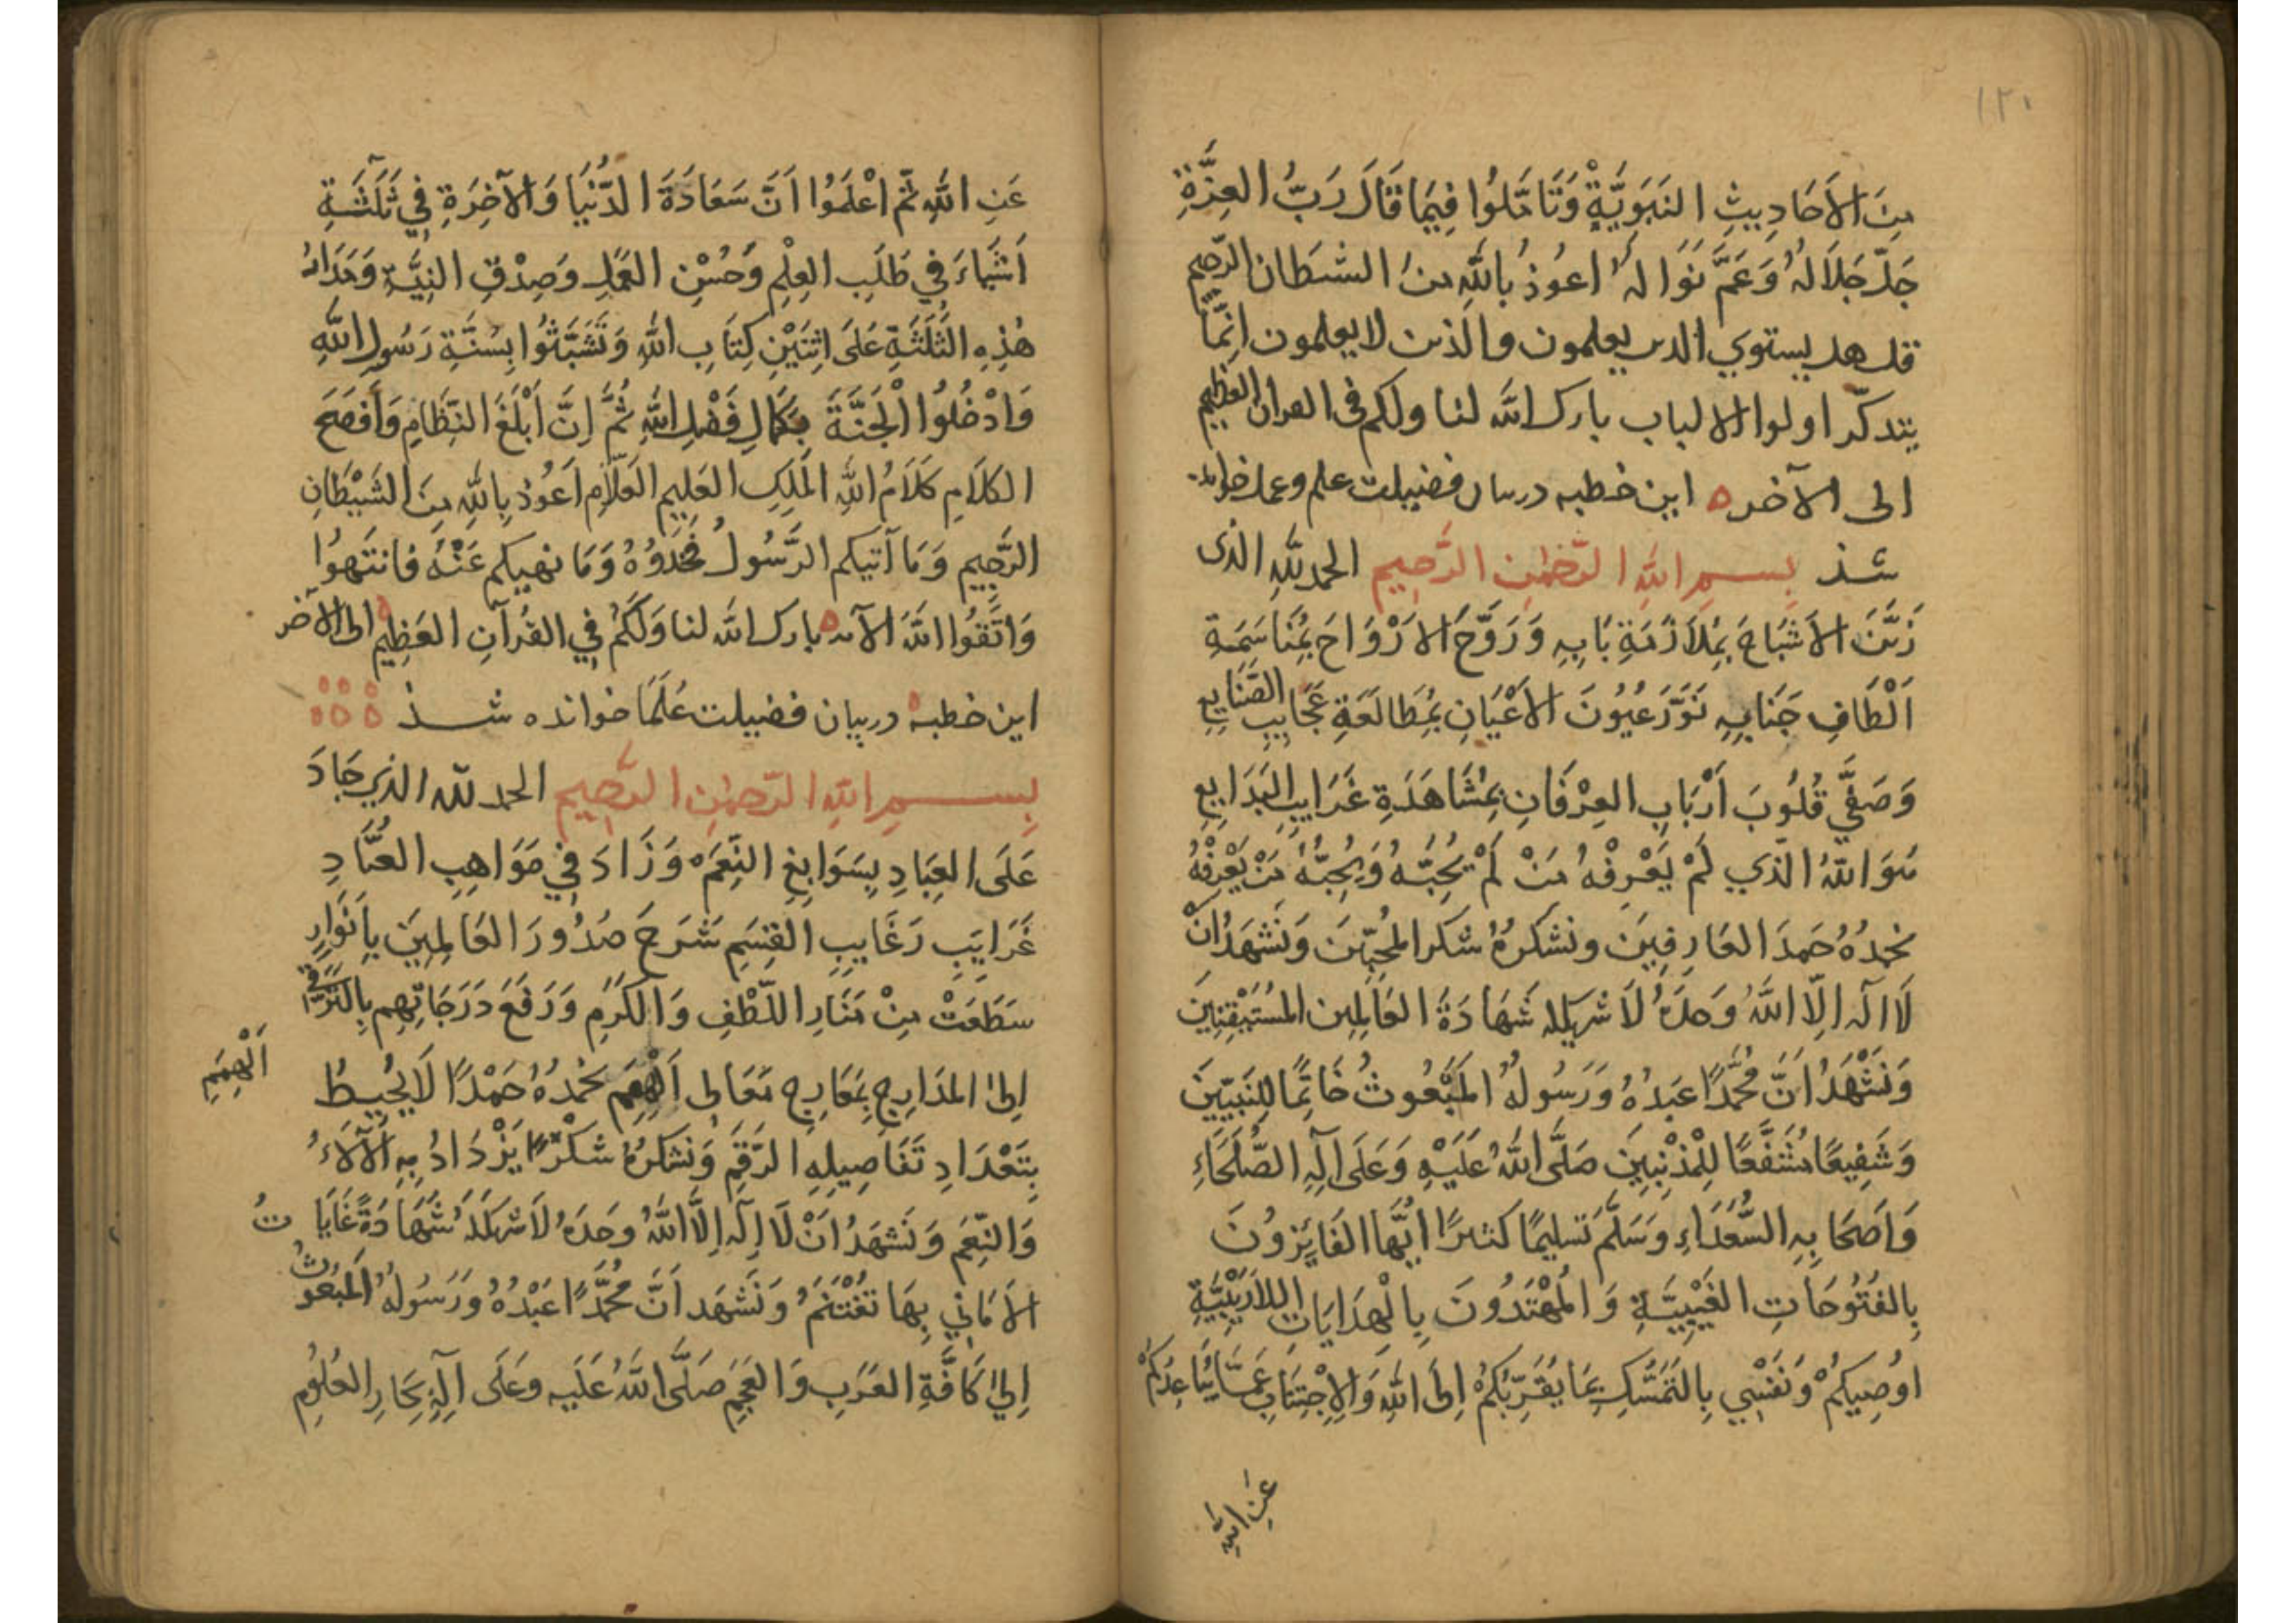 ١٢٠
مِنَ الاَحَادِيثِ النَبَوِيَّةِ وَتَاَمَّلُوا فِيمَا قَالَ رَبُّ العِزَّةِ
جَلّ جَلاَلهُ وَعَمَّ نَوَالهُ اعوُذُ بِاللهِ منَ الشيطان الرّجيم
قل هل يستوي الذين يعلمون والذين لا يعلمون انّمَا
يتذكّر اولوا الالباب بارك الله لنا ولكم فى القران العظيم
الى الآخره اين خطبه دربيان فضيلت علم وعمل خوانده
شد بسم اللهِ الرّحْمٰنِ الرَّحِيمِ الحمد للهِ الذى
زَيَّنَ الاَشْبَاحَ بِمُلاَزَمَةِ بَابِهِ وَرَوَّحَ الاَرْوَاحَ بِمُنَاسَمَةِ
اَلْطَافِ جَنَابِهِ نَوَّرَ عُيُونَ الاَعْيَانِ بِمُطَالَعَةِ عَجَايِبِ الصَّنَايِعِ
وَصَفَّي قُلُوبَ اَرْبَابِ العِرْفَانِ بِمُشَاهَدَةِ غَرَايِبِ البَدَايِعِ
هُوَ اللهُ الَّذي لَمْ يَعْرِفْهُ مَنْ لَمْ يُحِبَّهُ وَيُحِبُّهُ مَنْ يَعْرِفْهُ
نحمدُهُ حَمدَ العَارِفِينَ ونشكرهُ شكر المُحِبّينَ وَنَشهَدُ اَنْ
لَا اله اِلّا اللهُ وَحدَهُ لَا شريكله شَهَادَةَ العَالِمِين المُسْتَيْقِنِينَ
وَنَشْهَدُ اَنَّ مُحَمَّدًا عَبدُهُ وَرَسُولُهُ المَبْعُوثُ خَاتِمًا لِلنَبِيّينَ
وَشَفِيعًا مُشَفَّعًا لِلْمُذْنِبِينَ صَلَّى اللهُ عَلَيْهِ وَعَلَى آلِهِ الصُّلَحَاءِ
وَاَصحَابِهِ السُّعَدَاءِ وَسَلَّمَ تَسليمًا كثيرًا ايُّهَا الفَايِزونَ
بِالفُتُوحَاتِ الغَيْبِيَّةِ وَالمُهْتَدُونَ بِالْهِدَايَاتِ اللاَّرَيْبِيَّةِ
اوُصِيكُمْ وَنَفْسِي بِالتَمَسُّكِ بِمَا يُقَرِّبُكُمْ اِلَى اللهِ وَالاِجْتِنَابِ عَمَّا يُبَاعِدُكُمْ
عَنِ اللهِ
عَنِ اللهِ ثُمّ اعْلَمُوا اَنَّ سَعَادَةَ الدُّنْيَا وَالآخِرَةِ فِي ثَلَثَةِ
اَشْيَاءَ فِي طَلَبِ العِلْمِ وَحُسْنِ العَمَلِ وَصِدْقِ النِيَّةِ وَمَدَارُ
هٰذِهِ الثَّلَثَةِ عَلَى اثنَيْنِ كِتَابِ اللهِ وَتَشَبَّثُوا بِسُنَّةِ رَسُولِ اللهِ
وَادْخُلُوا الْجَنَّةَ بِكَمَالِ فَضْلِ اللهِ ثُمَّ اِنَّ اَبْلَغَ النِّظَامِ وَاَفصَحَ
الكَلَامِ كَلَامُ اللهِ المَلِكِ العَلِيمِ العَلّامِ اَعوُذُ بِاللهِ مِنَ الشَيْطَانِ
الرَّجِيمِ وَمَا آتيكم الرَّسُولُ فَخُذوُهُ وَمَا نهيكم عَنْهُ فَانتَهوُا
وَاتَّقوُا اللهَ الآيه بارك الله لنا وَلَكُمْ فِي القُرآنِ العَظِيمِ الى الآخر
اين خطبه دربيان فضيلت عُلَمَا خوانده شد
بِسمِ اللهِ الرَّحمٰنِ الرَّحِيمِ الحمد لله الذي جَادَ
عَلَى العِبَادِ بِسَوَابِغِ النِعَمِ وَزَادَ فِي مَوَاهِبِ العُبَّادِ
غَرَايِبِ رَغَايِبِ القِسَمِ شَرَحَ صُدُورَ العَالِمِينَ بِاَنوَارٍ
سَطَعَتْ مِنْ مَنَارِ اللّطْفِ وَالكَرَمِ وَرَفَعَ دَرَجَاتِهِم بِالتَّرَقِّي
اِلىٰ المدَارِجِ بِمَعَارِجِ مَعَالِى اَلهِمَم نحمدُهُ حَمْدًا لَا يُحِيطُ
اَلْهِمَمِ
بِتَعْدَادِ تَفَاصِيلِهِ الرَّقمِ وَنشكرُهُ شكْرًا يَزْدَادُ بِهِ الآلاَءُ
وَالنِّعَمِ وَنَشهَدُ اَنْ لَا اِلٰهَ اِلَّا اللهُ وحدَهُ لَا شريكلهُ شَهَادَةً غَايَاتُ
الاَمَانِي بِهَا تُغْتَنَمُ وَنَشهَد اَنَّ مُحَمَّدًا عَبْدُهُ وَرَسُولهُ المَبْعُوثُ
اِلىٰ كَافَّةِ العَرَبِ وَالعَجَمِ صَلَّى اللهُ عَلَيه وعَلَى آلِهِ بِحَارِ العُلُومِ